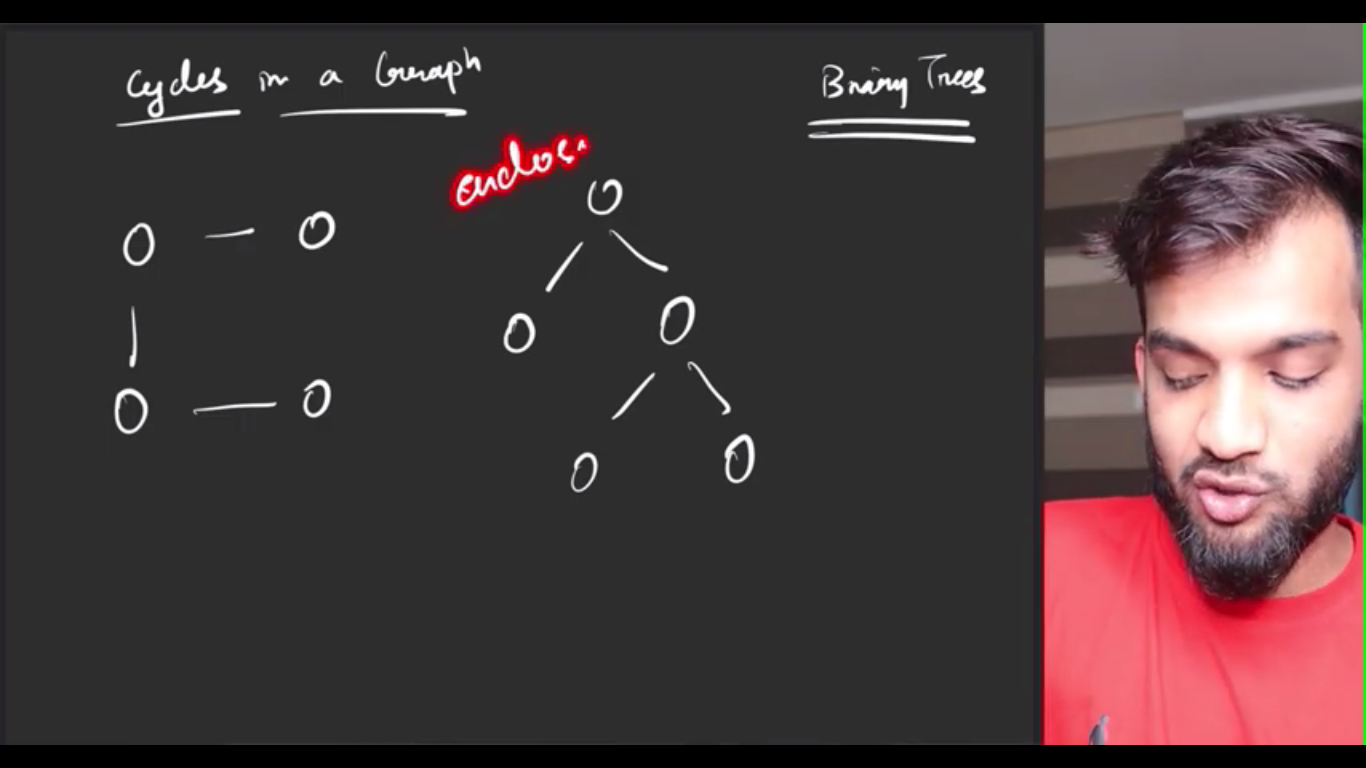 Cycles in a Graph
Binary Trees
enclos